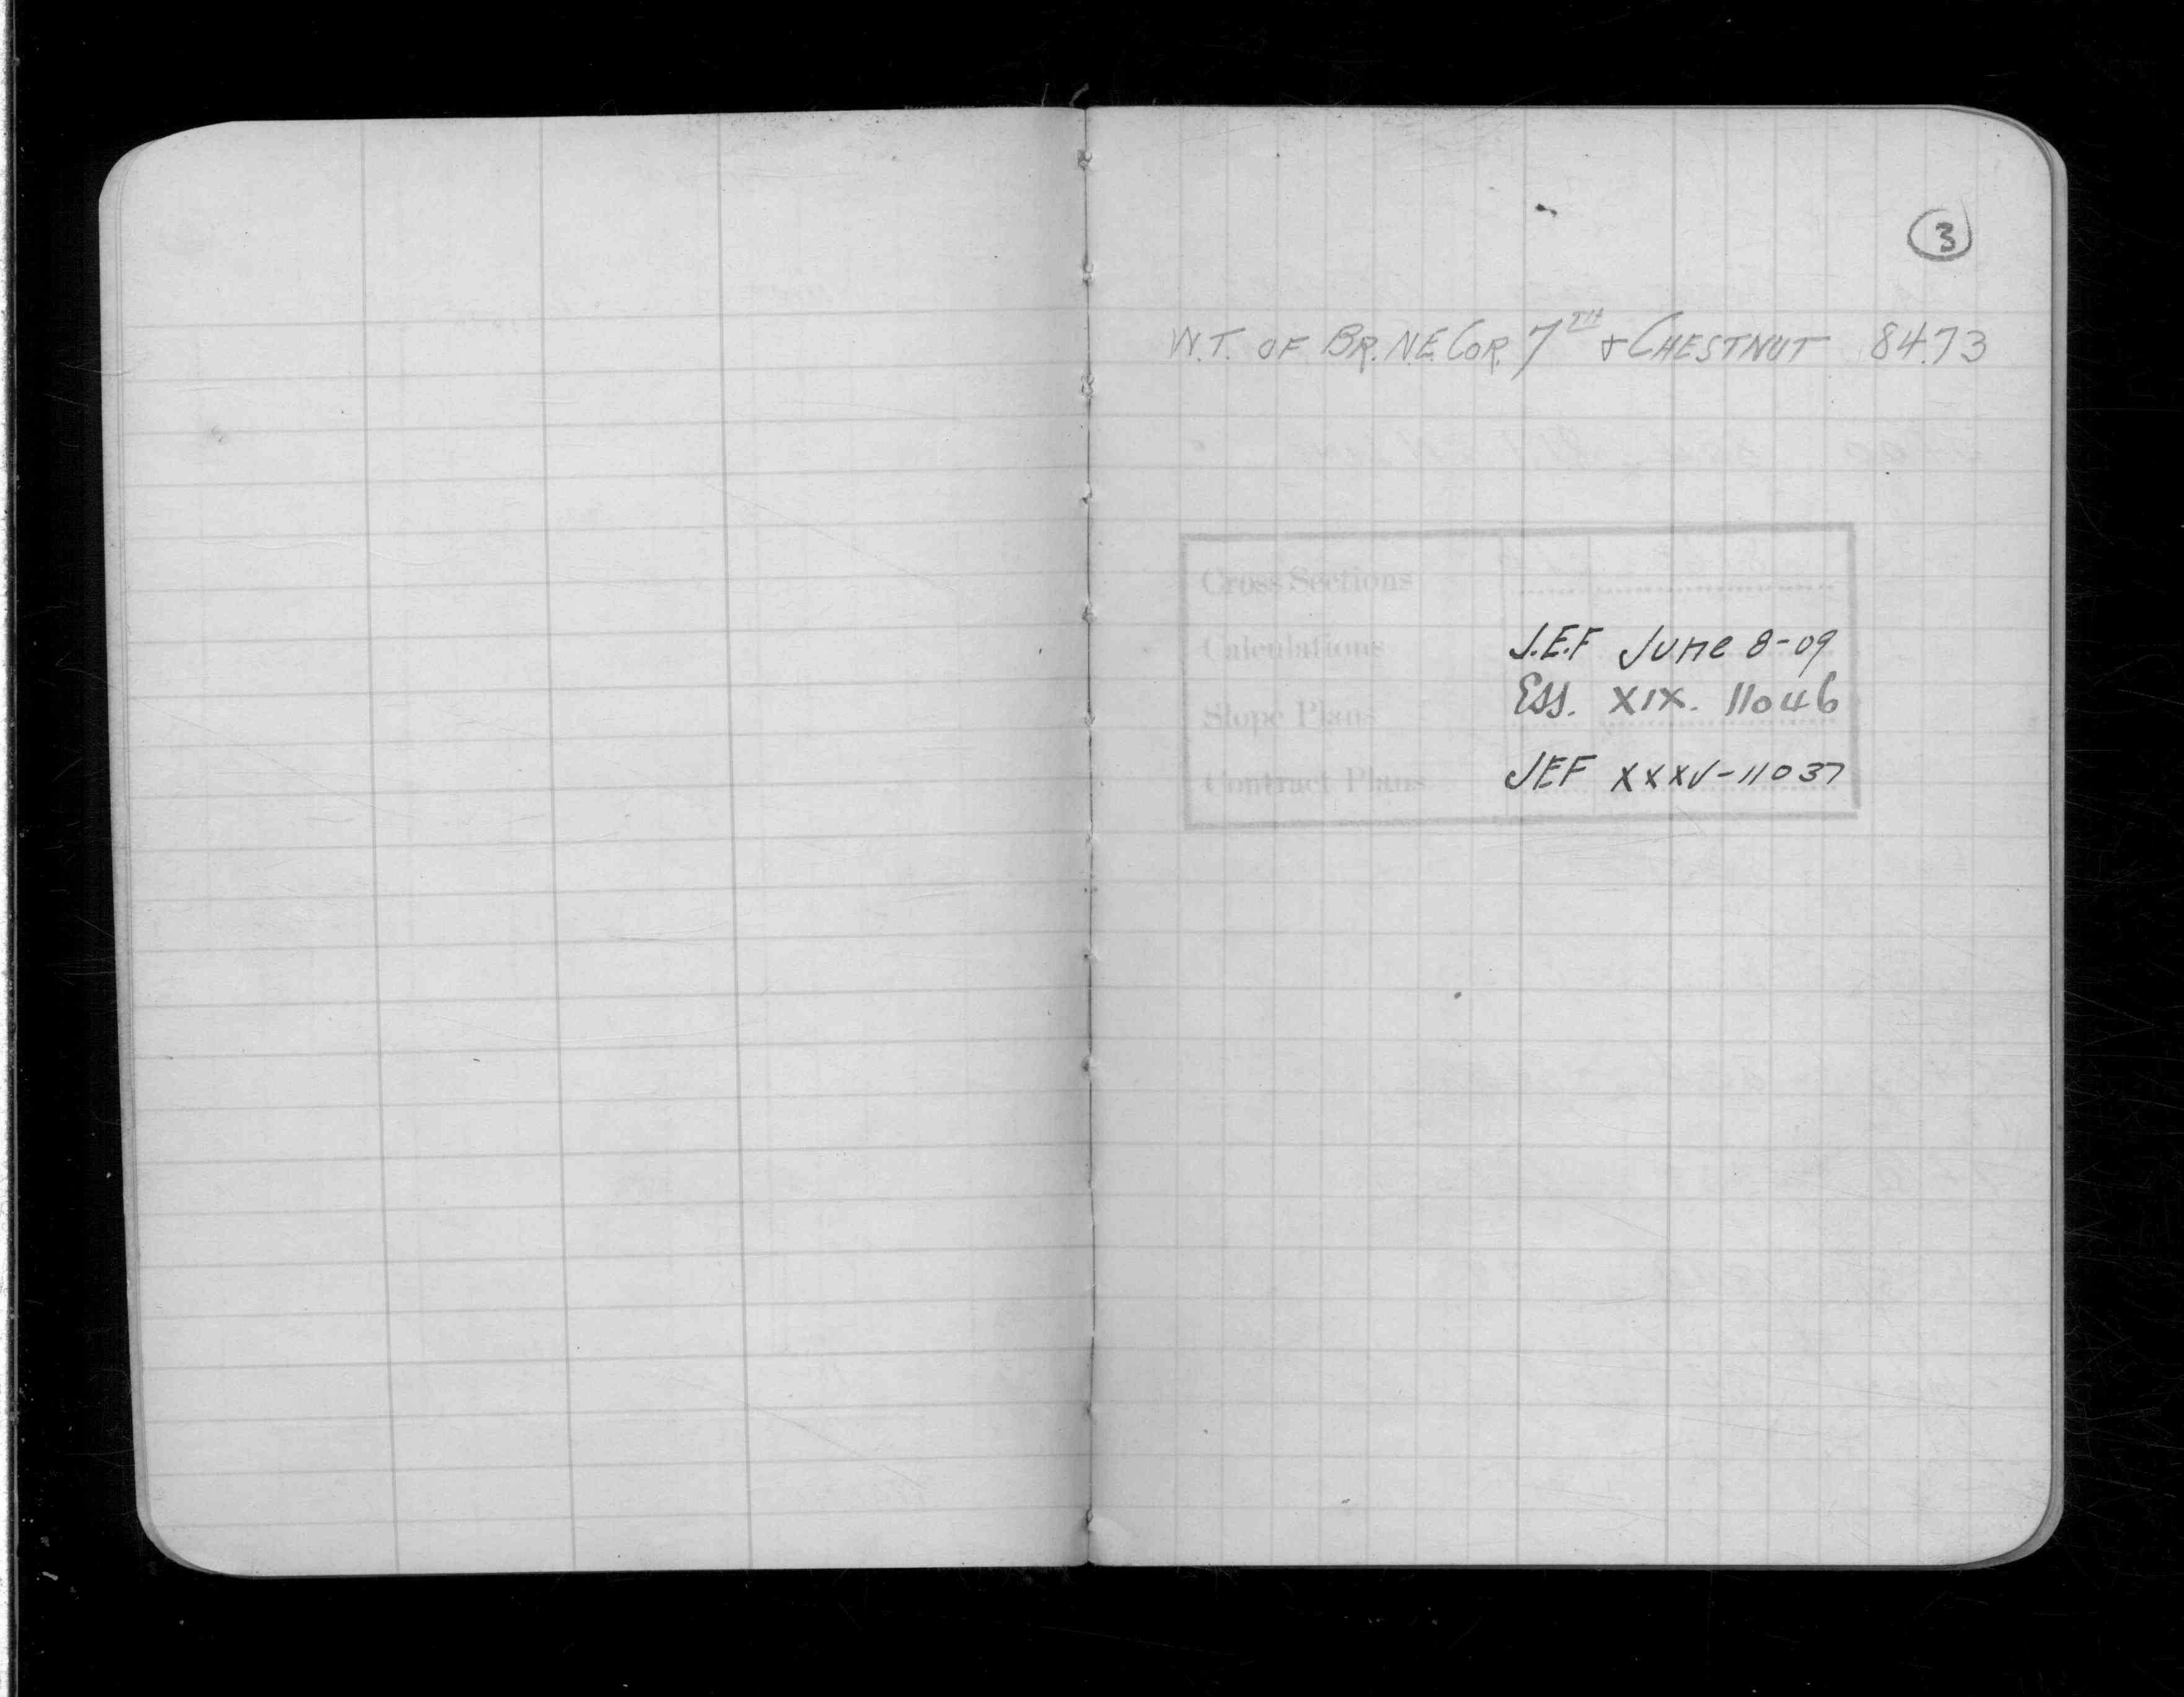 3
W.T. OF BR. N.E. COR. 7TH & CHESTNUT 84.73
Cross Sections
Calculations J.E.F June 8-09
Slope Plans ESS. XIX. 11046
Contract Plans JEF XXXV-11037